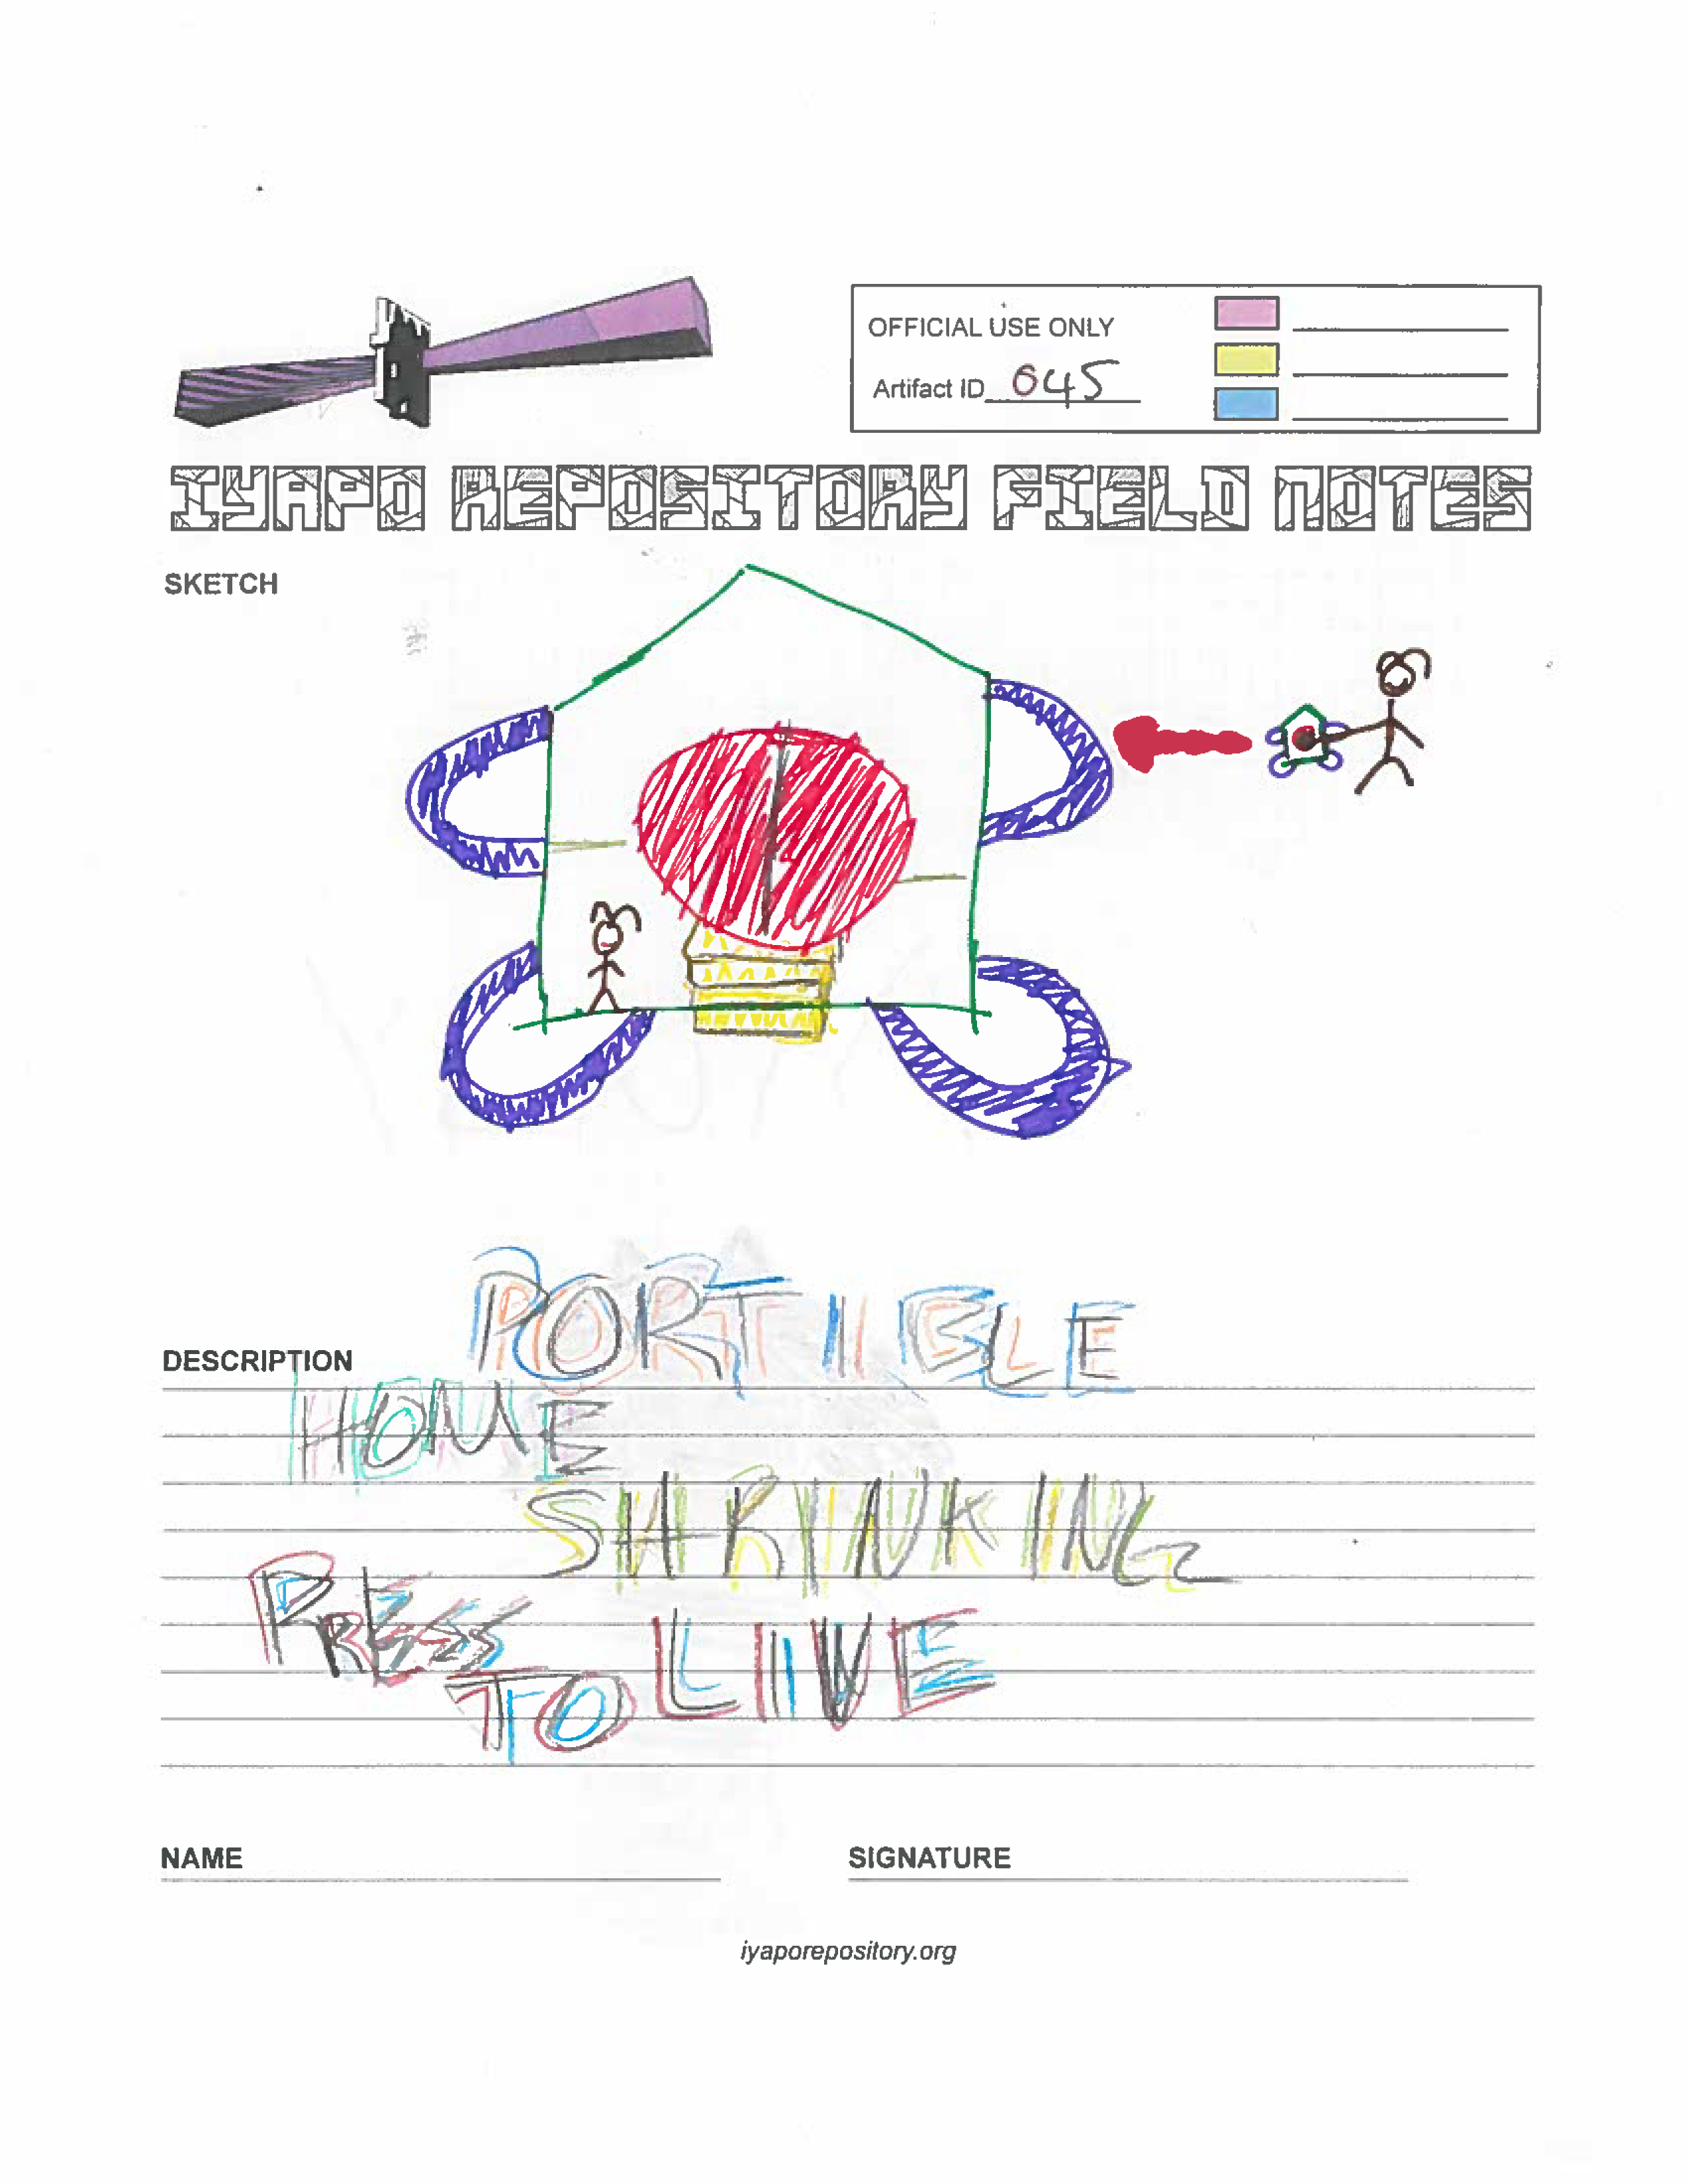 OFFICIAL USE ONLY
Artifact ID 645
IYAPO REPOSITORY FIELD NOTES
SKETCH
PORTIBLE
DESCRIPTION
HOME
SHRINKING
PRESS
TO LIVE
NAME
SIGNATURE
iyaporepository.org